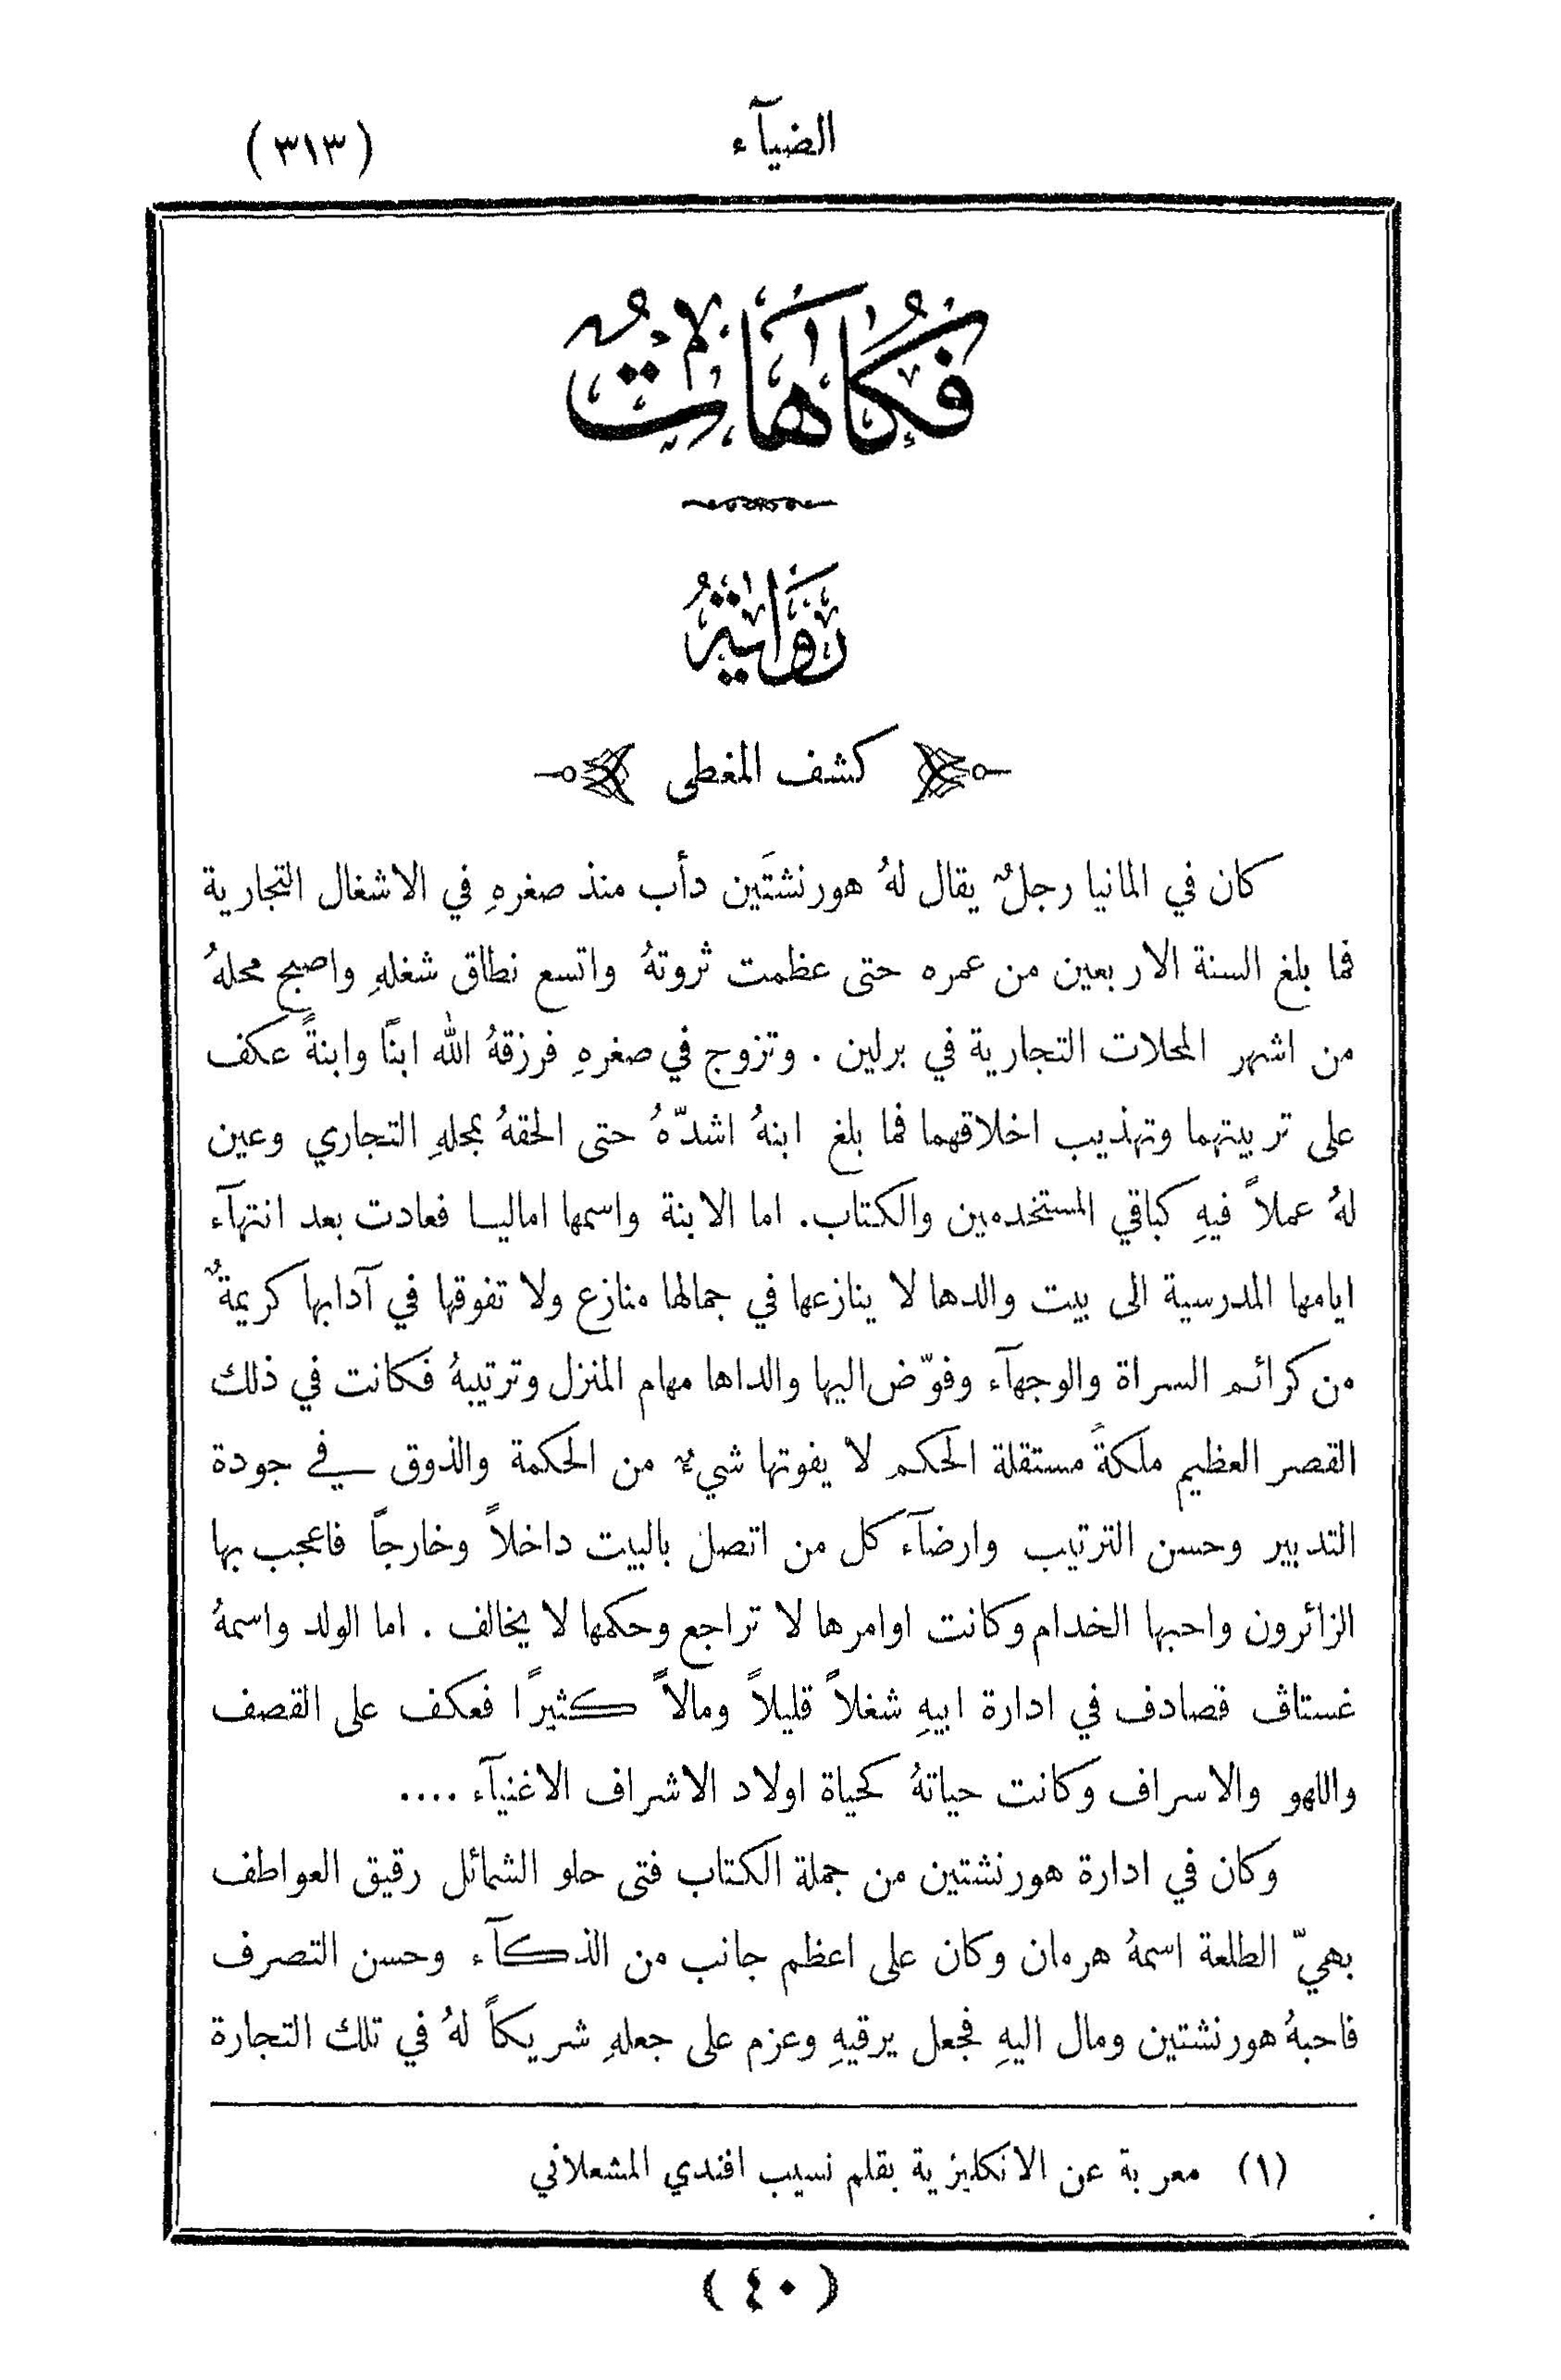 الضيآء
(٣١٣)
فُكَاهَاتٌ
رِوَايَةُ
كشف المغطى
كان في المانيا رجلٌ يقال لهُ هورنشتَين دأب منذ صغرهِ في الاشغال التجارية
فما بلغ السنة الاربعين من عمره حتى عظمت ثروتهُ واتسع نطاق شغلهِ واصبح محلهُ
من اشهر المحلات التجارية في برلين . وتزوج في صغرهِ فرزقهُ الله ابنًا وابنةً عكف
على تربيتهما وتهذيب اخلاقهما فما بلغ ابنهُ اشدّهُ حتى الحقهُ بمحلهِ التجاري وعين
لهُ عملاً فيهِ كباقي المستخدمين والكتاب. اما الابنة واسمها اماليا فعادت بعد انتهآء
ايامها المدرسية الى بيت والدها لا ينازعها في جمالها منازع ولا تفوقها في آدابها كريمةٌ
من كرائم السراة والوجهآء وفوّض اليها والداها مهام المنزل وترتيبهُ فكانت في ذلك
القصر العظيم ملكةً مستقلة الحكم لا يفوتها شيءٌ من الحكمة والذوق في جودة
التدبير وحسن الترتيب وارضآء كل من اتصل بالبيت داخلاً وخارجًا فاعجب بها
الزائرون واحبها الخدام وكانت اوامرها لا تراجع وحكمها لا يخالف . اما الولد واسمهُ
غستاف فصادف في ادارة ابيهِ شغلاً قليلاً ومالاً كثيرًا فعكف على القصف
واللهو والاسراف وكانت حياتهُ كحياة اولاد الاشراف الاغنيآء ....
وكان في ادارة هورنشتين من جملة الكتاب فتى حلو الشمائل رقيق العواطف
بهيّ الطلعة اسمهُ هرمان وكان على اعظم جانب من الذكآء وحسن التصرف
فاحبهُ هورنشتين ومال اليهِ فجعل يرقيهِ وعزم على جعلهِ شريكاً لهُ في تلك التجارة
(١) معربة عن الانكليزية بقلم نسيب افندي المشعلاني
(٤٠)